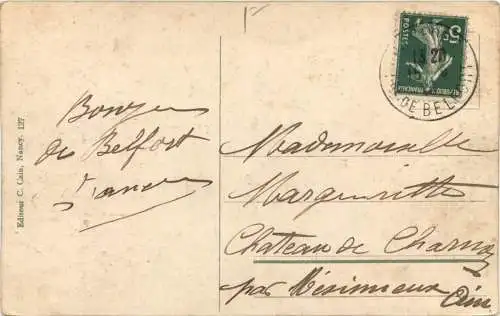 Editeur C. Cain, Nancy. 127
de Belfort
5c
POSTES
REPUBLIQUE FRANÇAISE
DE BELFORT
Mademoiselle
Marguerite
Château de Charnoz
par Méximieux
Ain